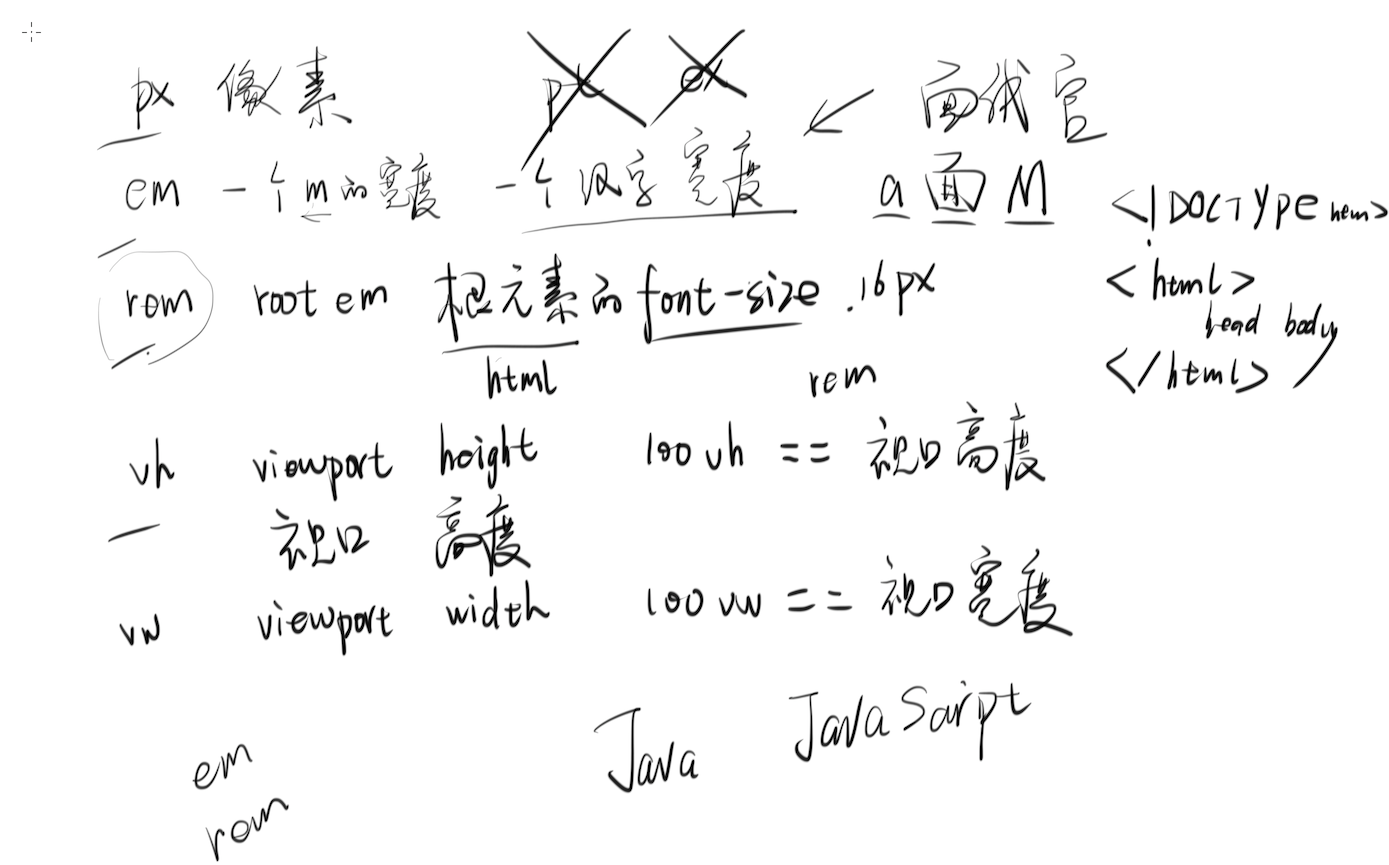 px 像素 pt ex 面试官
em 一个m的宽度 一个汉字宽度 a 面 M <!DOCTYPE html>
rem root em 根元素的font-size.16px <html>
head body
html rem </html>
vh viewport height 100vh == 视口高度
视口 高度
vw viewport width 100vw == 视口宽度
Java JavaScript
em
rem